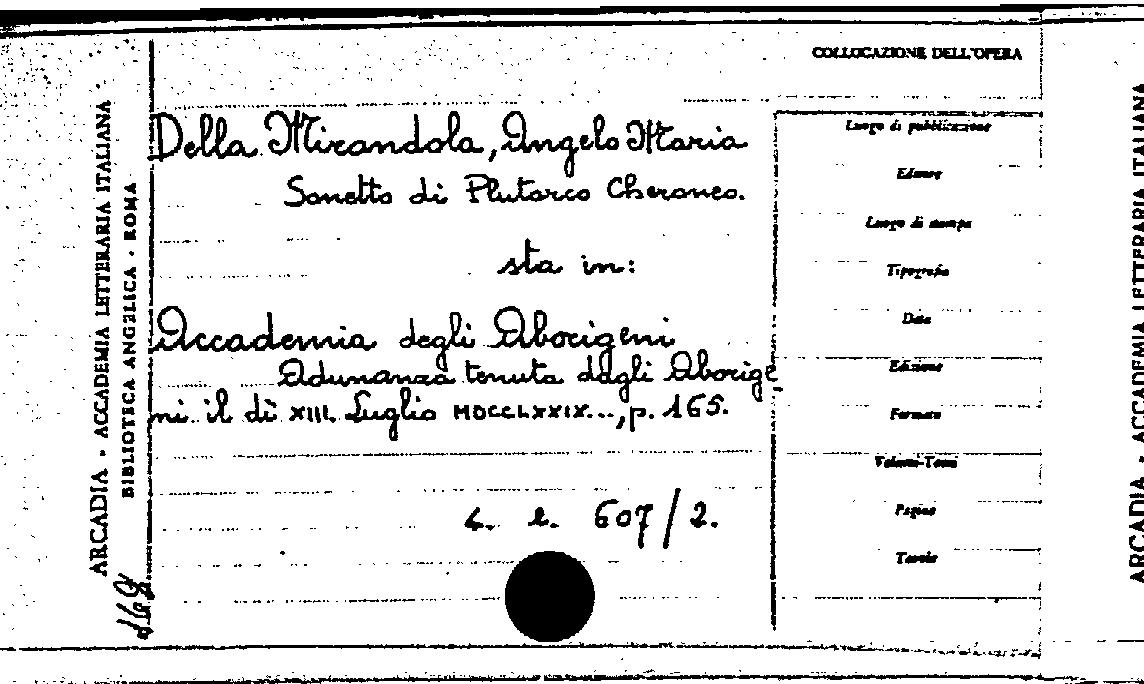 COLLOCAZIONE DELL'OPERA
Della Mirandola, Angelo Maria
Sonetto di Plutarco Cheroneo.
sta in:
Accademia degli Aborigeni
Adunanza tenuta dagli Aborige
ni il dì XIII. Luglio MDCCLXXIX..., p. 165.
607/2.
Luogo di pubblicazione
Editore
Luogo di stampa
Tipografia
Data
Edizione
Formato
Volumi-Tomi
Pagine
Tavole
ARCADIA - ACCADEMIA LETTERARIA ITALIANA
BIBLIOTECA ANGELICA - ROMA
ARCADIA - ACCADEMIA LETTERARIA ITALIANA